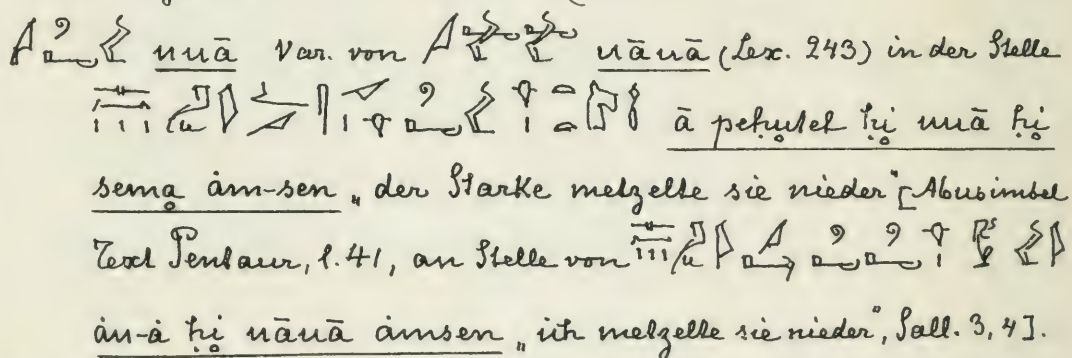 nuā Var. von uāuā (Lex. 243) in der Stelle
ā peḥutet ḥi uuā ḥi
sema ȧm-sen „der Starke metzelte sie nieder“ [Abusimbel
Text Pentaur, l. 41, an Stelle von
ȧn-ȧ ḥi uāuā ȧmsen „ich metzelte sie nieder“, Sall. 3, 4].